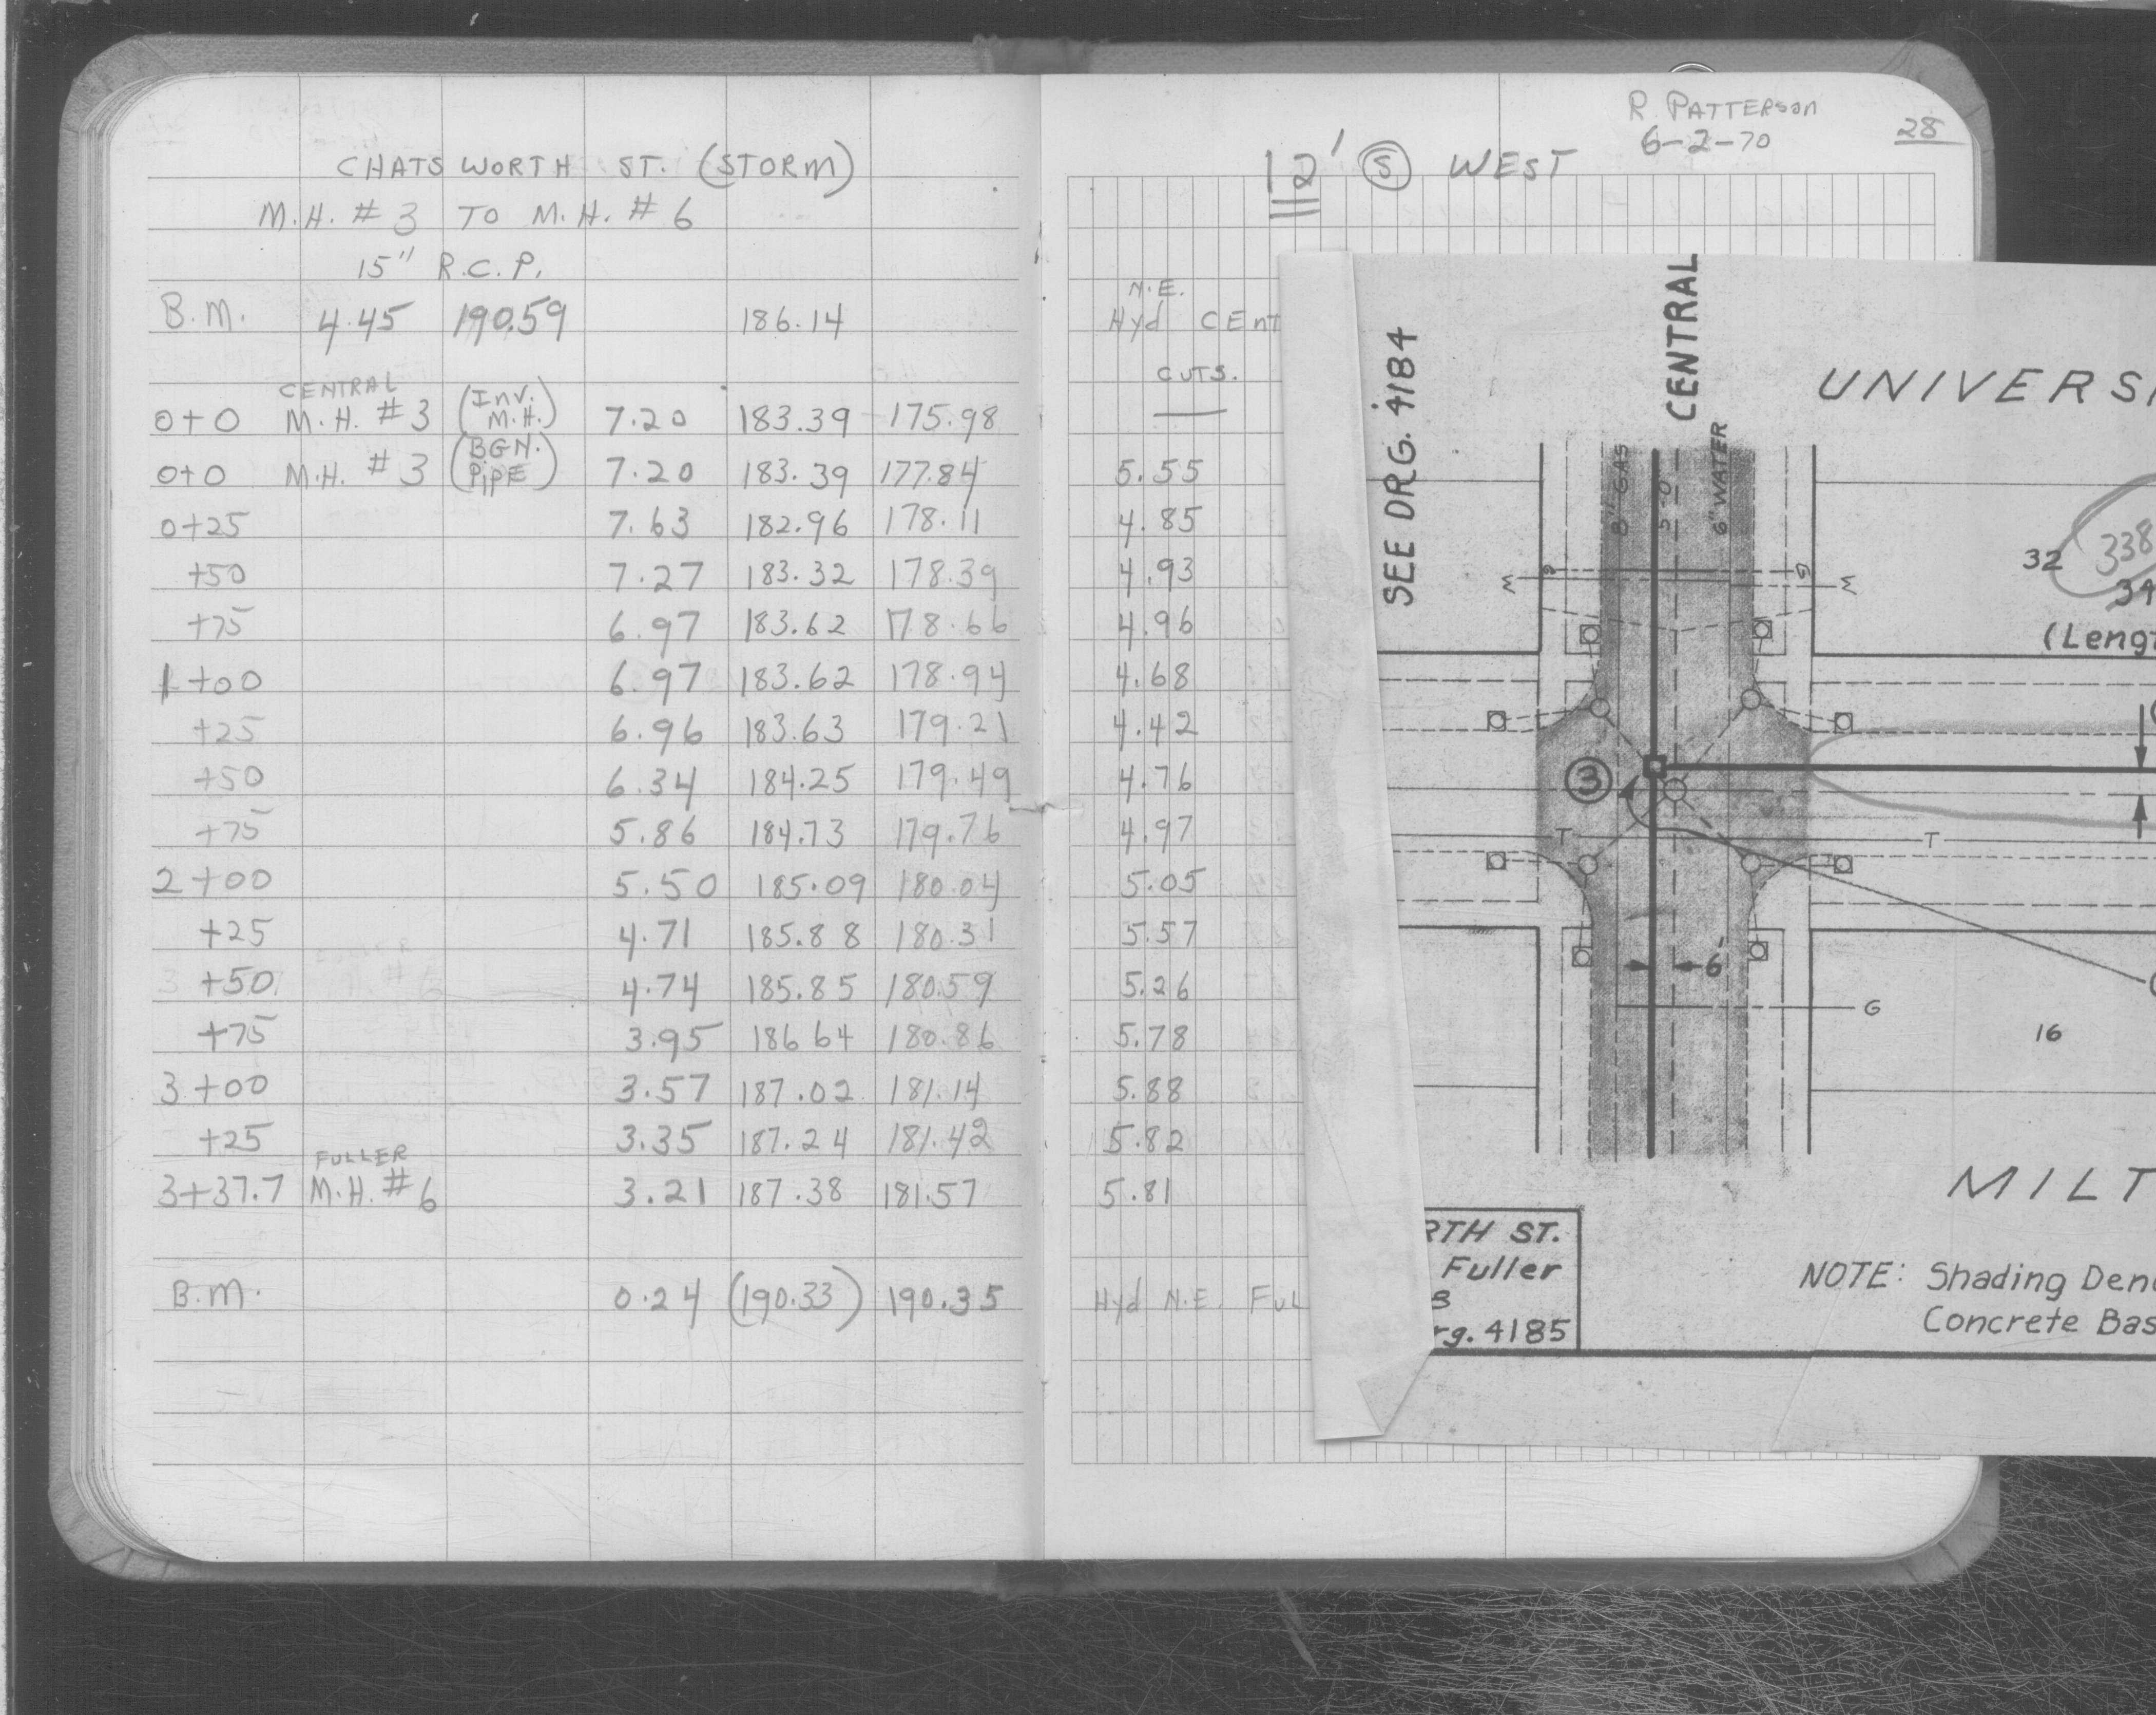 CHATSWORTH ST. (STORM)
M.H. #3 TO M.H. #6
15" R.C.P.
B.M. 4.45 190.59 186.14
CENTRAL
0+0 M.H. #3 (Inv. M.H.) 7.20 183.39 175.98
0+0 M.H. #3 (BGN. PIPE) 7.20 183.39 177.84
0+25 7.63 182.96 178.11
+50 7.27 183.32 178.39
+75 6.97 183.62 178.66
1+00 6.97 183.62 178.94
+25 6.96 183.63 179.21
+50 6.34 184.25 179.49
+75 5.86 184.73 179.76
2+00 5.50 185.09 180.04
+25 4.71 185.88 180.31
+50 4.74 185.85 180.59
+75 3.95 186.64 180.86
3+00 3.57 187.02 181.14
+25 3.35 187.24 181.42
FULLER
3+37.7 M.H. #6 3.21 187.38 181.57
B.M. 0.24 (190.33) 190.35
R. PATTERSON
6-2-70
28
12' (S) WEST
N.E.
Hyd CENT
CUTS.
5.55
4.85
4.93
4.96
4.68
4.42
4.76
4.97
5.05
5.57
5.26
5.78
5.88
5.82
5.81
Hyd N.E. FUL
SEE DRG. 4184
CENTRAL
UNIVERS
8" GAS
5-0
6" WATER
32
338
34
(Leng
W
G
G
W
3
T
T
6'
G
16
MILT
RTH ST.
Fuller
B
rg. 4185
NOTE: Shading Den
Concrete Bas